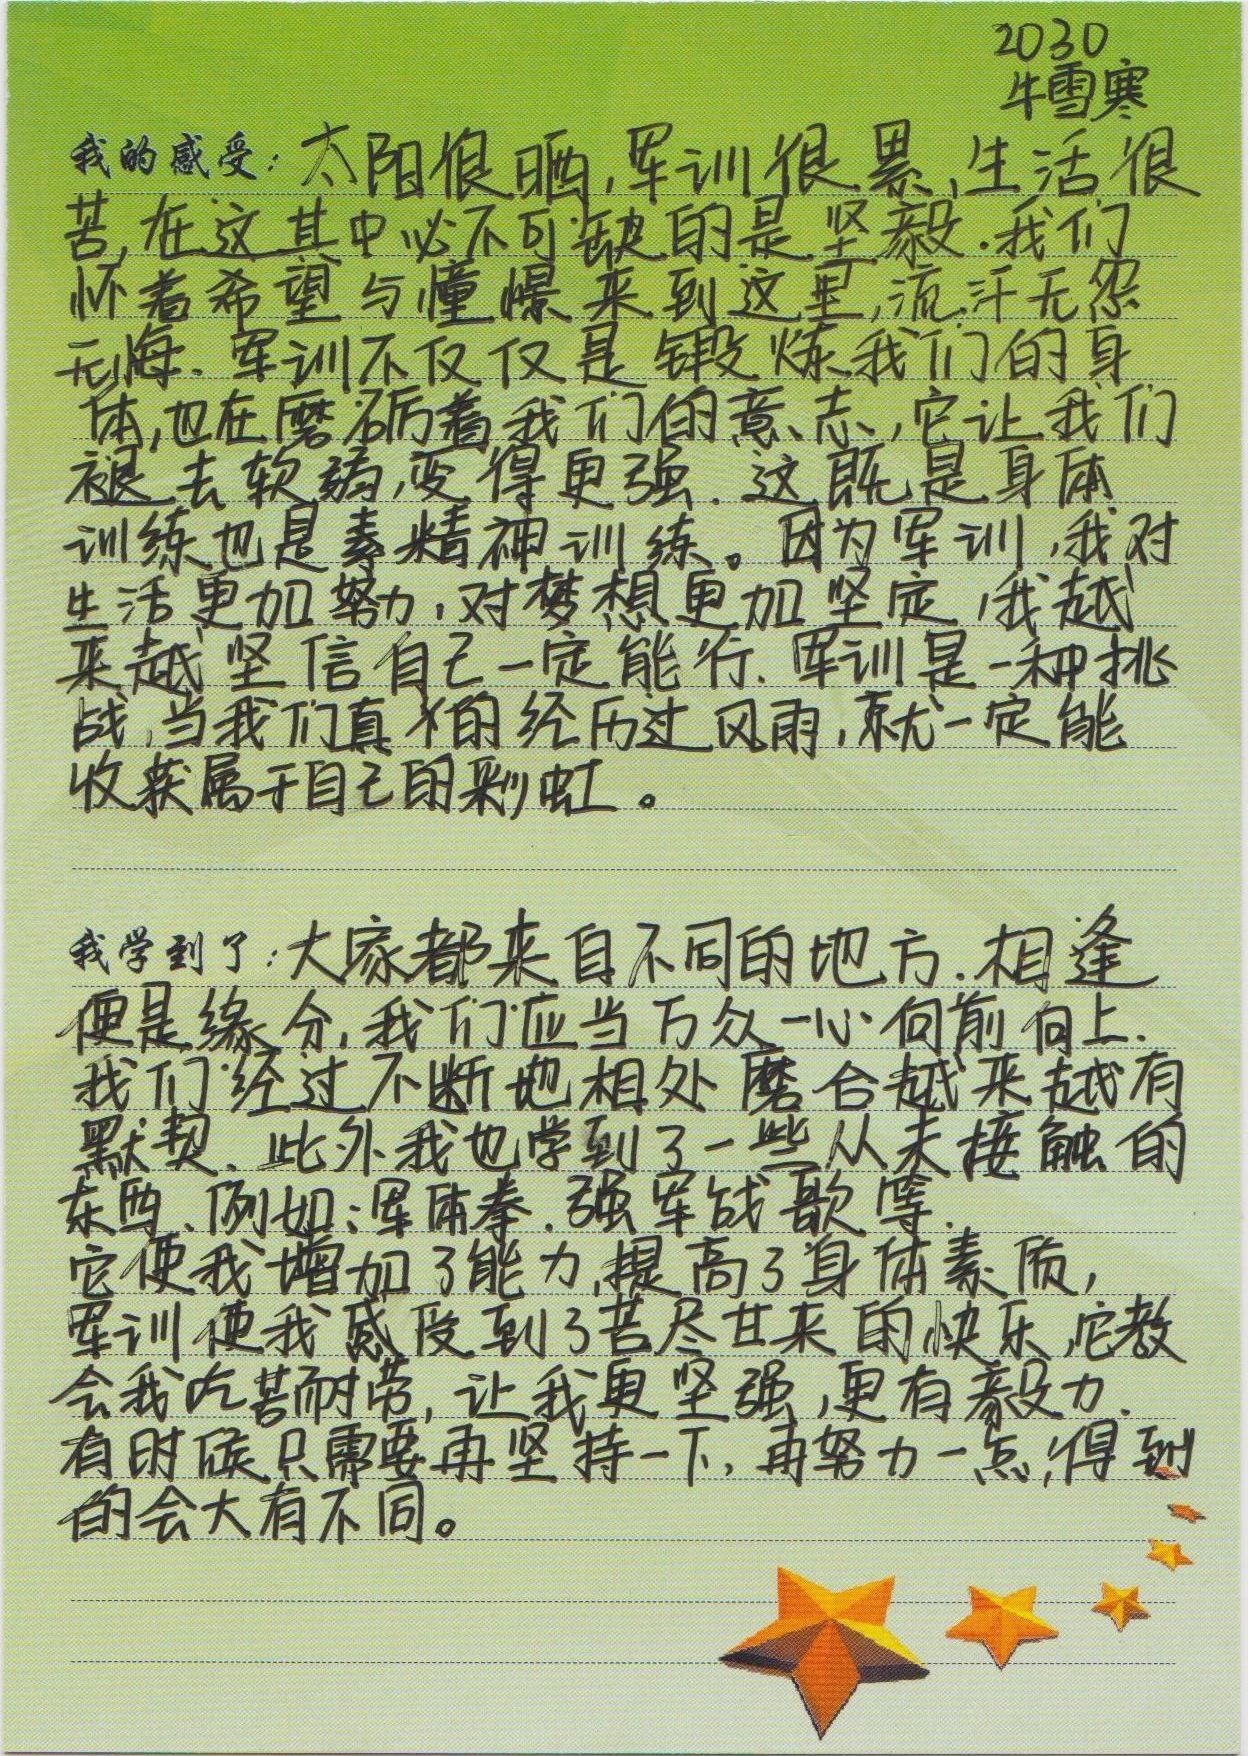 2030
牛雪寒
我的感受：太阳很晒，军训很累，生活很
苦，在这其中必不可缺的是坚毅.我们
怀着希望与憧憬来到这里，流汗无怨
无悔.军训不仅仅是锻炼我们的身
体，也在磨砺着我们的意志，它让我们
褪去软弱，变得更强.这既是身体
训练也是精神训练。因为军训，我对
生活更加努力，对梦想更加坚定，我越
来越坚信自己一定能行.军训是一种挑
战，当我们真的经历过风雨，就一定能
收获属于自己的彩虹。
我学到了：大家都来自不同的地方.相逢
便是缘分，我们应当万众一心向前向上.
我们经过不断地相处磨合越来越有
默契.此外我也学到了一些从未接触的
东西、例如：军体拳.强军战歌等.
它使我增加了能力，提高了身体素质，
军训使我感受到了苦尽甘来的快乐，它教
会我吃苦耐劳，让我更坚强，更有毅力.
有时候只需要再坚持一下，再努力一点，得到
的会大有不同。